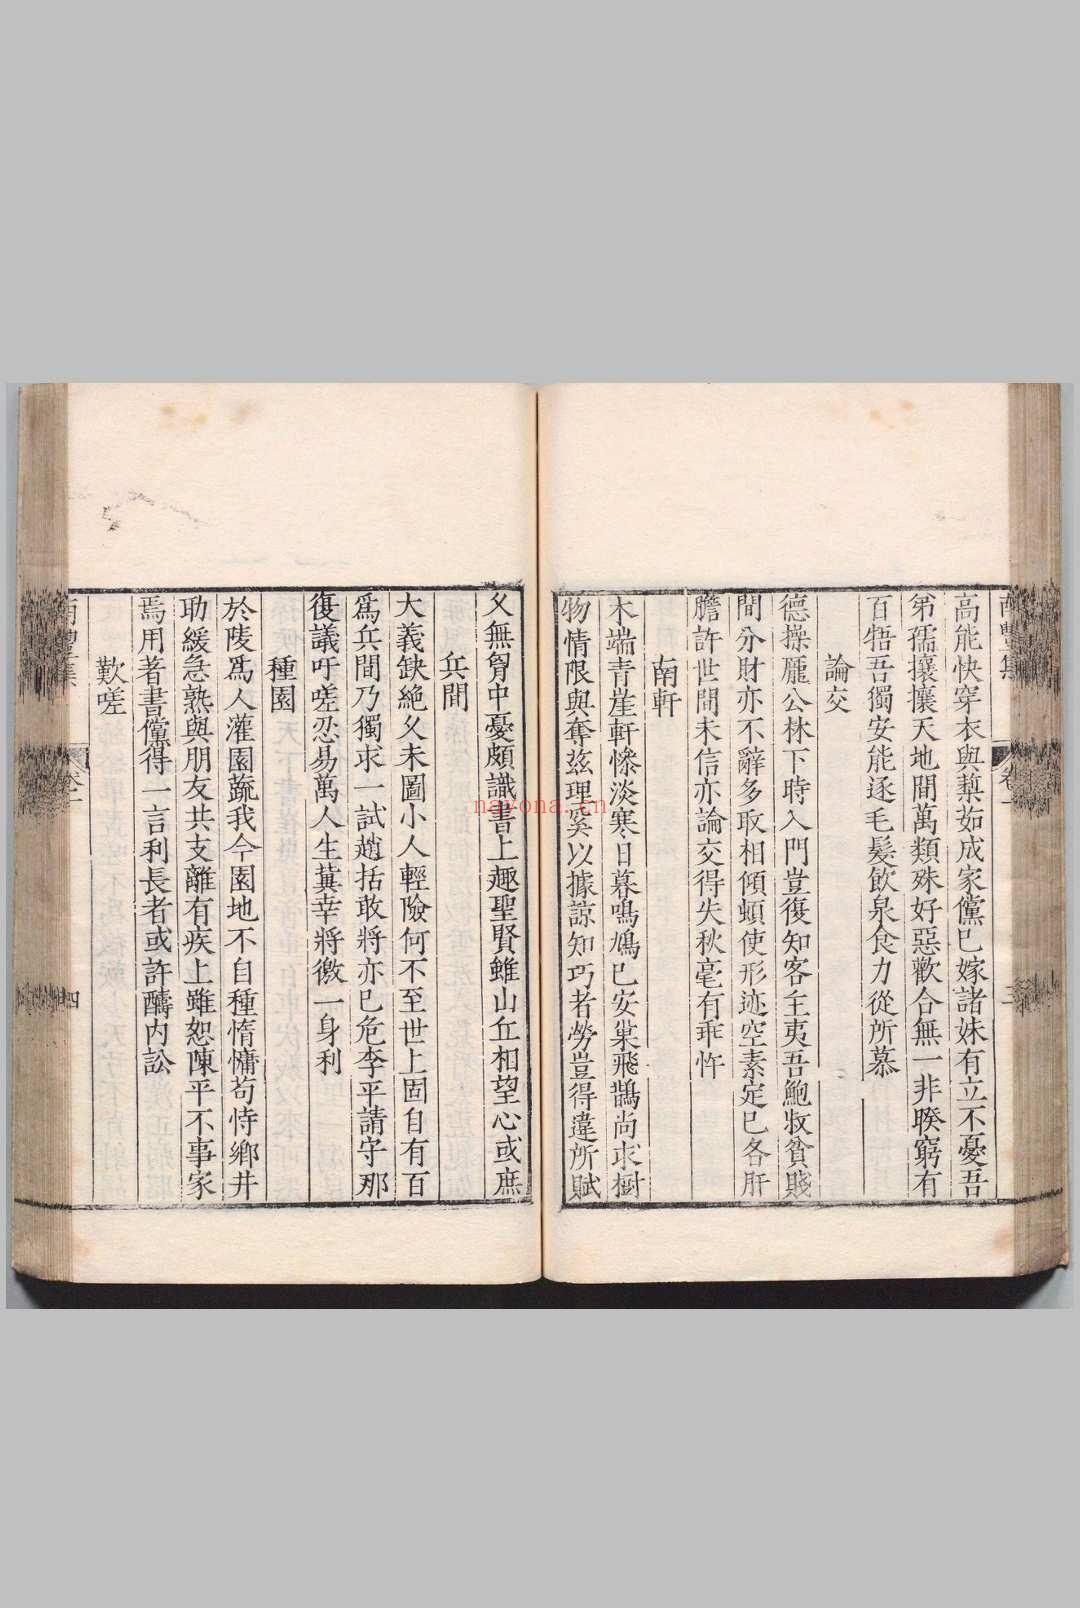 高能快穿衣與蔾茹成家儻已嫁諸妹有立不憂吾
弟孺攘攘天地間萬類殊好惡歡合無一非暌窮有
百牾吾獨安能逐毛髮飲泉食力從所慕
論交
德操龐公林下時入門豈復知客主夷吾鮑牧貧賤
間分財亦不辭多取相傾蝢使形迹空素定已各肝
膽許世間未信亦論交得失秋毫有乖忤
南軒
木端青崖軒慘淡寒日暮鳴鳩已安巢飛鵲尚求樹
物情限與奪茲理奚以據諒知巧者勞豈得違所賦
乂無胷中憂頗識書上趣聖賢雖山丘相望心或庶
兵間
大義缺絶乂未圖小人輕險何不至世上固自有百
爲兵間乃獨求一試趙括敢將亦已危李平請守那
復議吁嗟忍易萬人生冀幸將徼一身利
種園
於陵爲人灌園蔬我今園地不自種惰慵苟恃鄉井
助緩急熟與朋友共支離有疾上雖恕陳平不事家
焉用著書儻得一言利長者或許醻内訟
歎嗟
卷一
四
nayona.cn